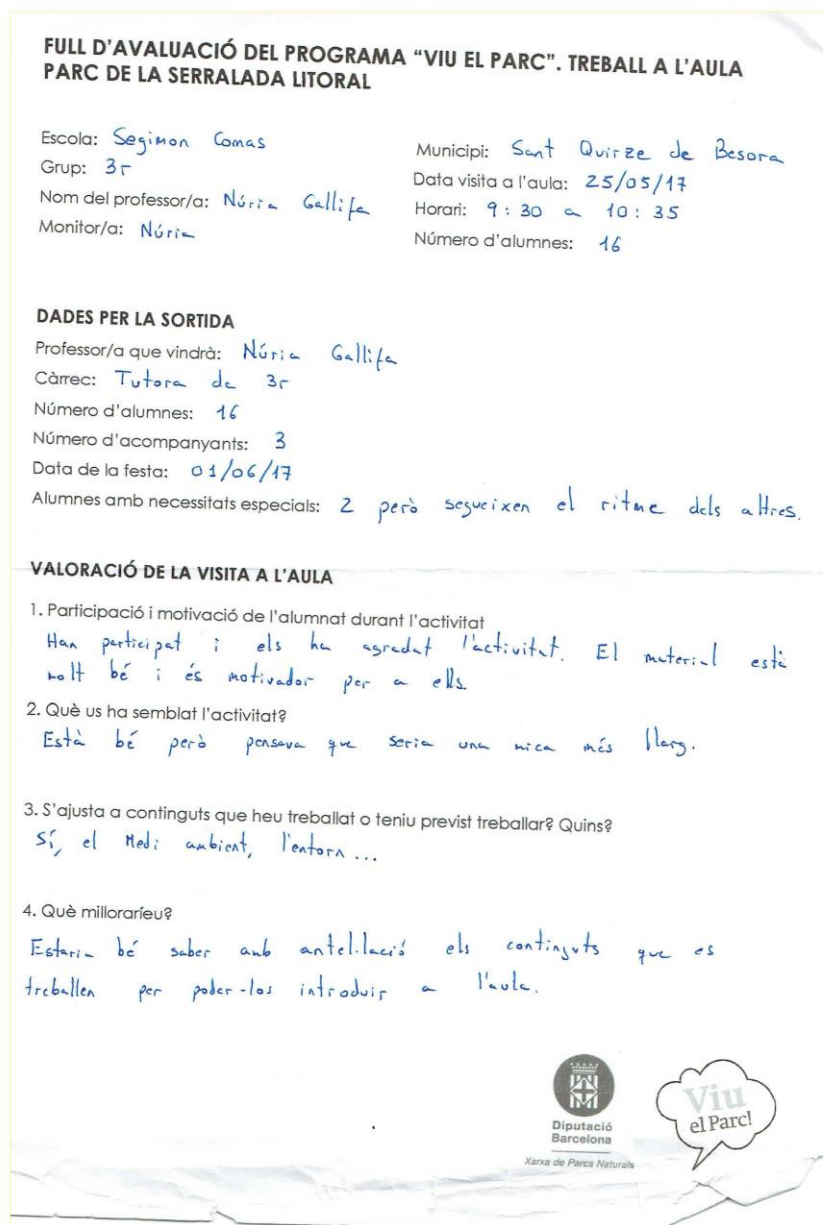 FULL D'AVALUACIÓ DEL PROGRAMA “VIU EL PARC”. TREBALL A L'AULA
PARC DE LA SERRALADA LITORAL
Escola: Segimon Comas
Grup: 3r
Nom del professor/a: Núria Gallifa
Monitor/a: Núria
Municipi: Sant Quirze de Besora
Data visita a l'aula: 25/05/17
Horari: 9:30 a 10:35
Número d'alumnes: 16
DADES PER LA SORTIDA
Professor/a que vindrà: Núria Gallifa
Càrrec: Tutora de 3r
Número d'alumnes: 16
Número d'acompanyants: 3
Data de la festa: 01/06/17
Alumnes amb necessitats especials: 2 però segueixen el ritme dels altres.
VALORACIÓ DE LA VISITA A L'AULA
1. Participació i motivació de l'alumnat durant l'activitat
Han participat i els ha agradat l'activitat. El material està
molt bé i és motivador per a ells.
2. Què us ha semblat l'activitat?
Està bé però pensava que seria una mica més llarg.
3. S'ajusta a continguts que heu treballat o teniu previst treballar? Quins?
Sí, el Medi ambient, l'entorn...
4. Què milloraríeu?
Estaria bé saber amb antel·lació els continguts que es
treballen per poder-los introduir a l'aula.
Diputació
Barcelona
Xarxa de Parcs Naturals
Viu
el Parc!